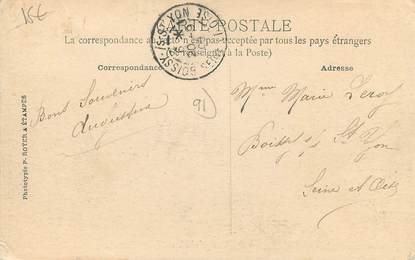 15€
CARTE POSTALE
La correspondance au recto n'est pas acceptée par tous les pays étrangers
(Se renseigner à la Poste)
Correspondance
Adresse
Bons Souvenirs
Augustine
91
Mme Marie Leroy
Boissy s/s St Yon
Seine et Oise
Phototypie P. ROYER à ÉTAMPES